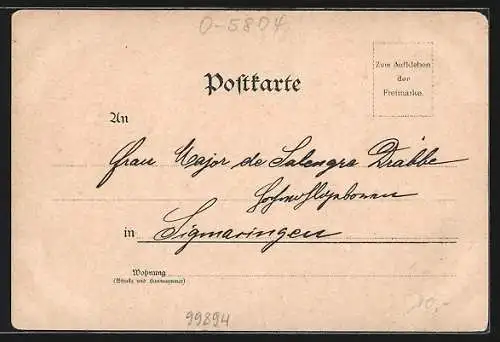 O-5804
Zum Aufkleben
der
Freimarke.
Postkarte
An
Frau Major de Salengra Drabbe
Hochwohlgeboren
in Sigmaringen
Wohnung
(Straße und Hausnummer)
99894
10,-